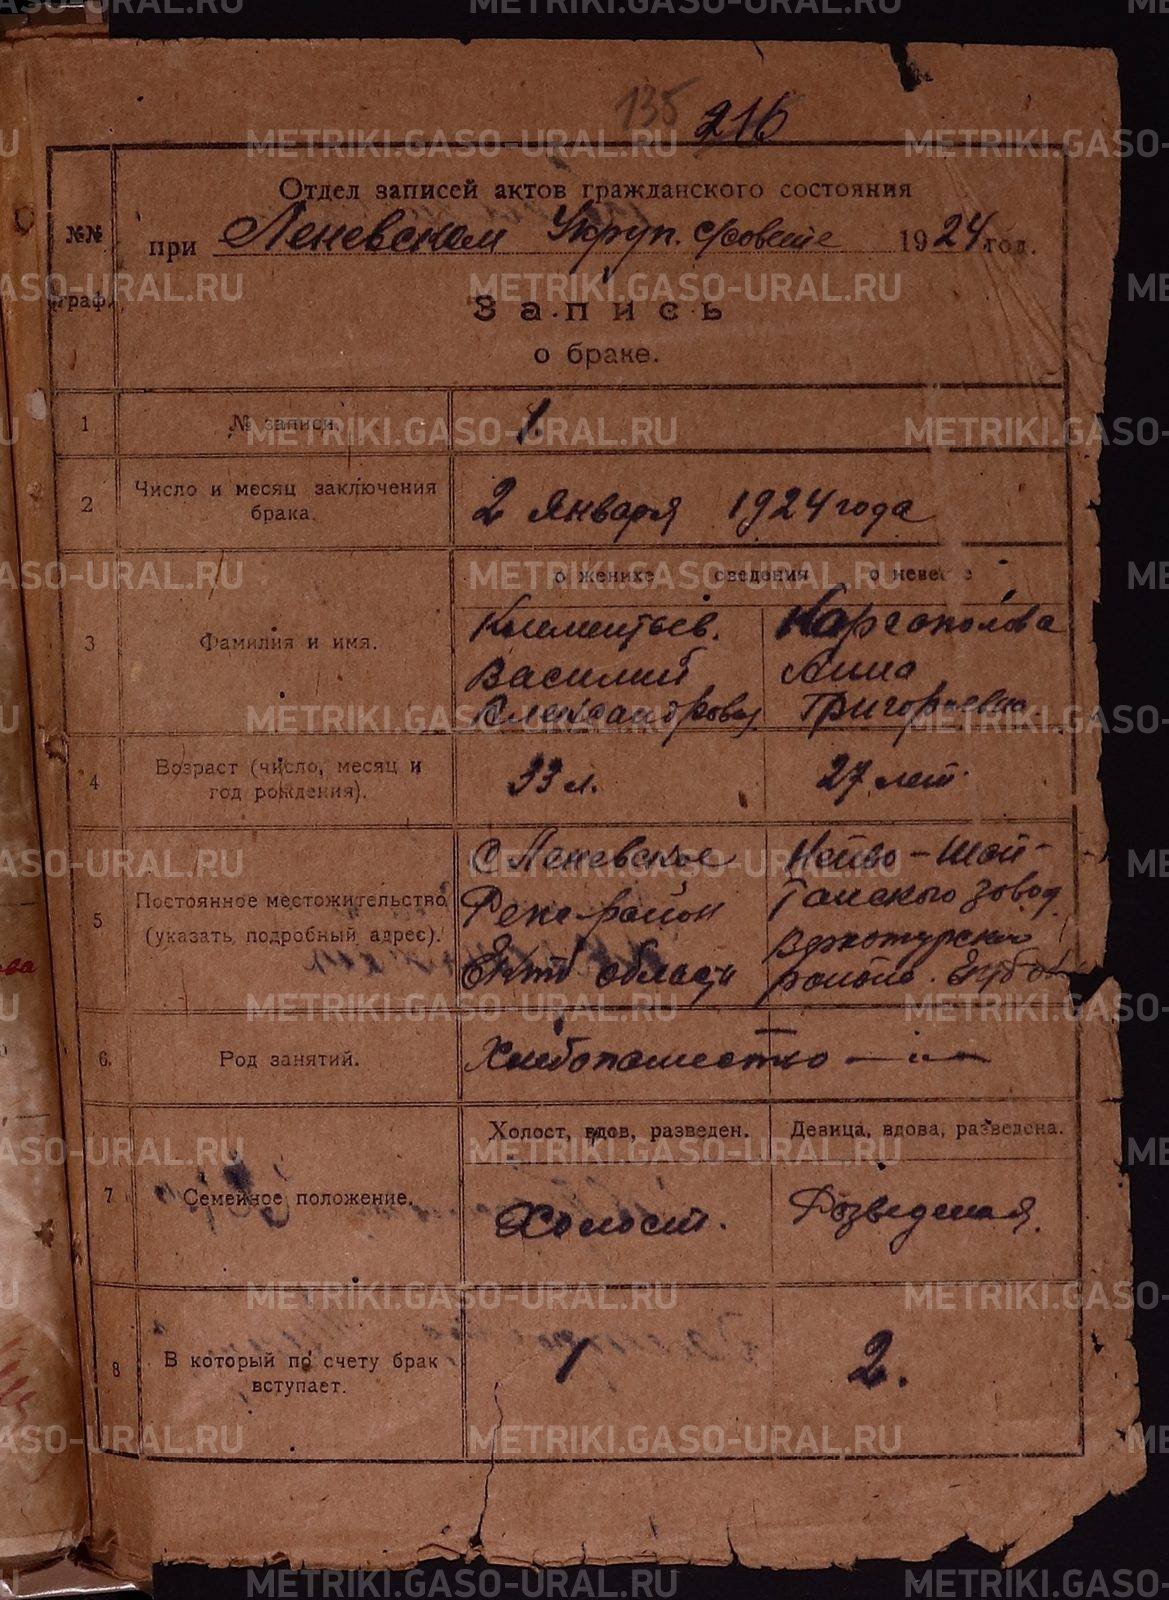 135 216
Отдел записей актов гражданского состояния
при Леневском Укруп. с/совете 1924 год.
№№
граф.
Запись
о браке.
1 № записи. 1.
2 Число и месяц заключения
брака. 2 Января 1924 года
о женихе сведения о невесте
3 Фамилия и имя.
Климентьев. Карсополова
Василий Анна
Александрович Григорьевна.
4 Возраст (число, месяц и
год рождения). 33 л. 27 лет.
5 Постоянное местожительство
(указать подробный адрес).
С Леневское Нейво-Шай-
Реж-район танского завод.
Екат области
района.
6. Род занятий. Хлебопашество — " —
7 Семейное положение.
Холост, вдов, разведен. Девица, вдова, разведена.
Холост. Розведеная.
8 В который по счету брак
вступает. 1 2.
METRIKI.GASO-URAL.RU